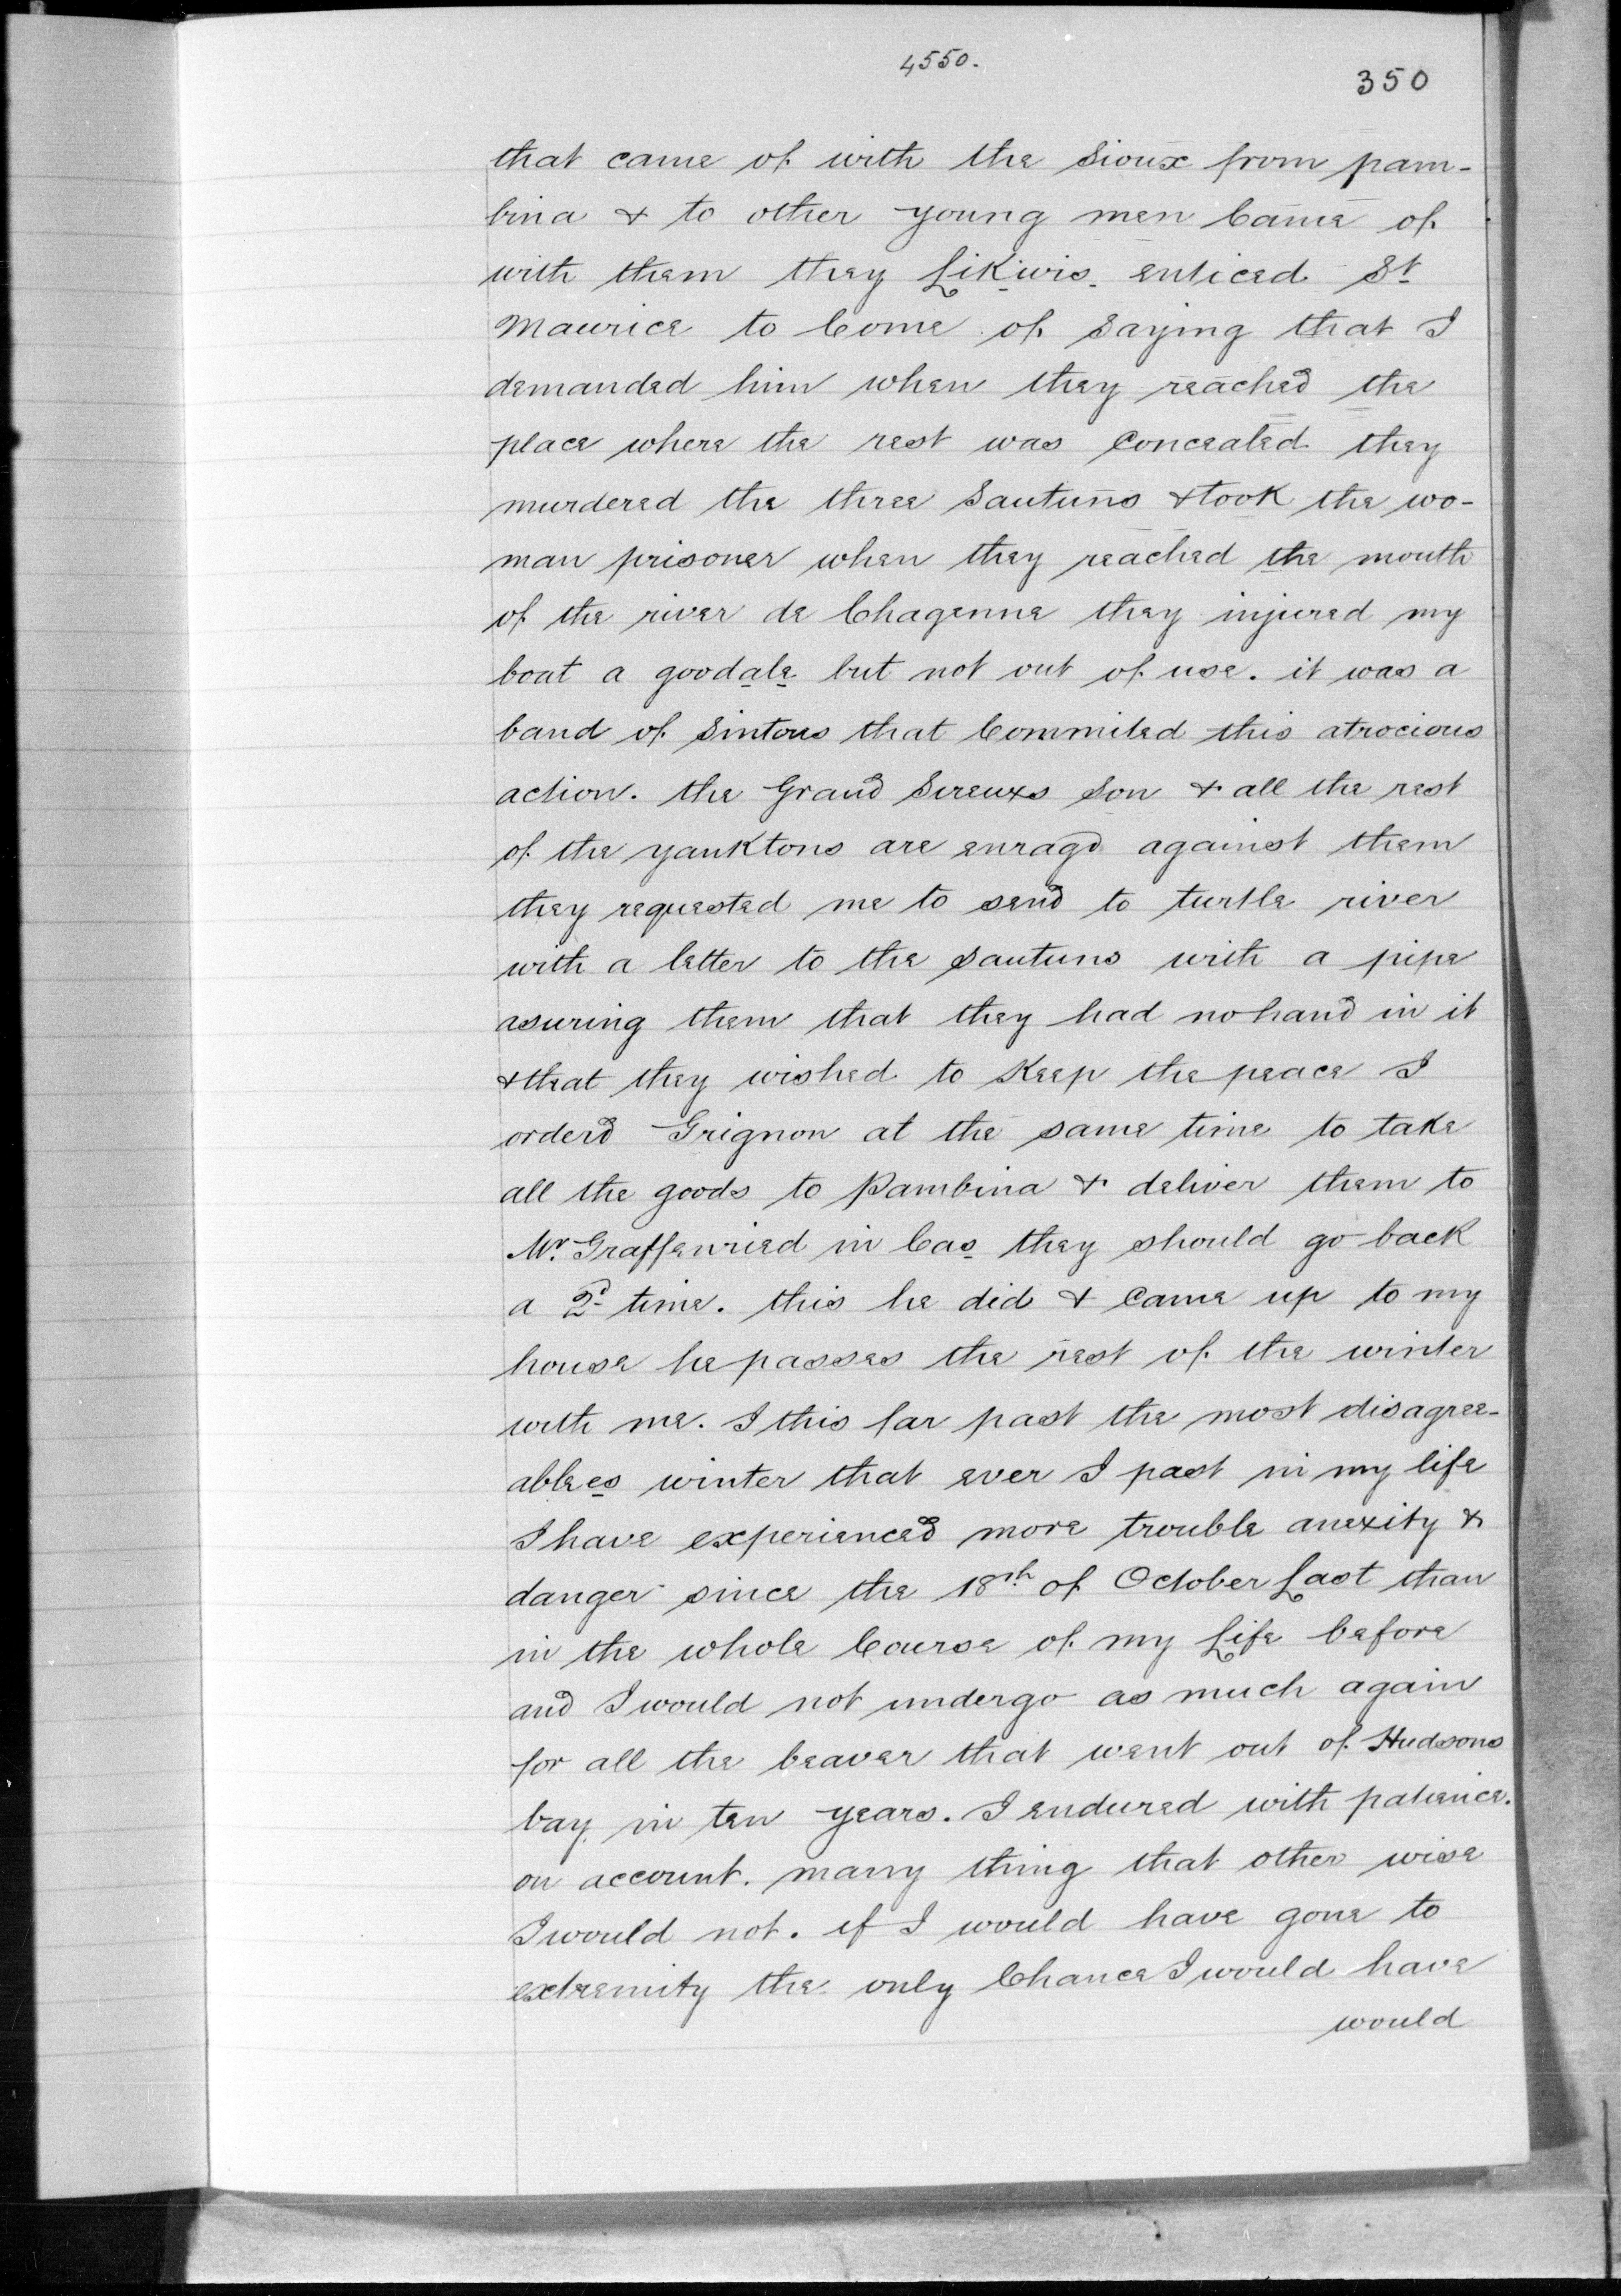 4550.
350
that came of with the Sioux from pam-
bina & to other young men Came of
with them they Likwis enticed St
Maurice to Come of Saying that I
demanded him when they reached the
place where the rest was Concealed they
murdered the three Sautuns & took the wo-
man prisoner when they reached the mouth
of the river de Chagenne they injured my
boat a goodale but not out of use. it was a
band of Sintous that Commited this atrocious
action. the Grand Sireuxs Son & all the rest
of the yanktons are enragd against them
they requested me to send to turtle river
with a letter to the Sautuns with a pipe
asuring them that they had no hand in it
& that they wished to Keep the peace I
orderd Grignon at the same time to take
all the goods to Pambina & deliver them to
Mr. Graffenried in Cas they should go back
a 2d time. this he did & Came up to my
house he passes the rest of the winter
with me. I this far past the most disagree-
ablees winter that ever I past in my life
I have experienced more trouble anexity &
danger since the 18th of October Last than
in the whole Course of my Life before
and I would not undergo as much again
for all the beaver that went out of Hudsons
bay in ten years. I endured with patience.
on account. many thing that other wise
I would not. if I would have gone to
extremity the only Chance I would have
would